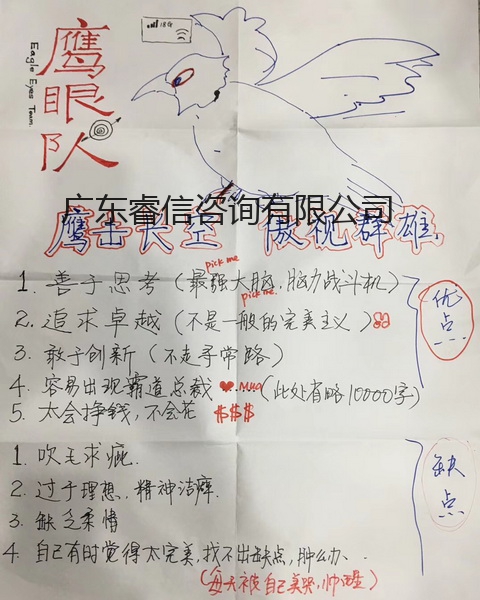 鹰眼队
Eagle Eyes Team.
广东睿信咨询有限公司
鹰击长空 傲视群雄
pick me
1. 善于思考(最强大脑,脑力战斗机)
pick me.
2. 追求卓越(不是一般的完美主义)
3. 敢于创新(不走寻常路)
4. 容易出现霸道总裁 (此处省略10000字)
5. 太会挣钱,不会花 $$$
优点...
1. 吹毛求疵.
2. 过于理想,精神洁癖.
3. 缺乏柔情
4. 自己有时觉得太完美,找不出缺点,肿么办..
(每天被自己美哭,帅醒)
缺点.